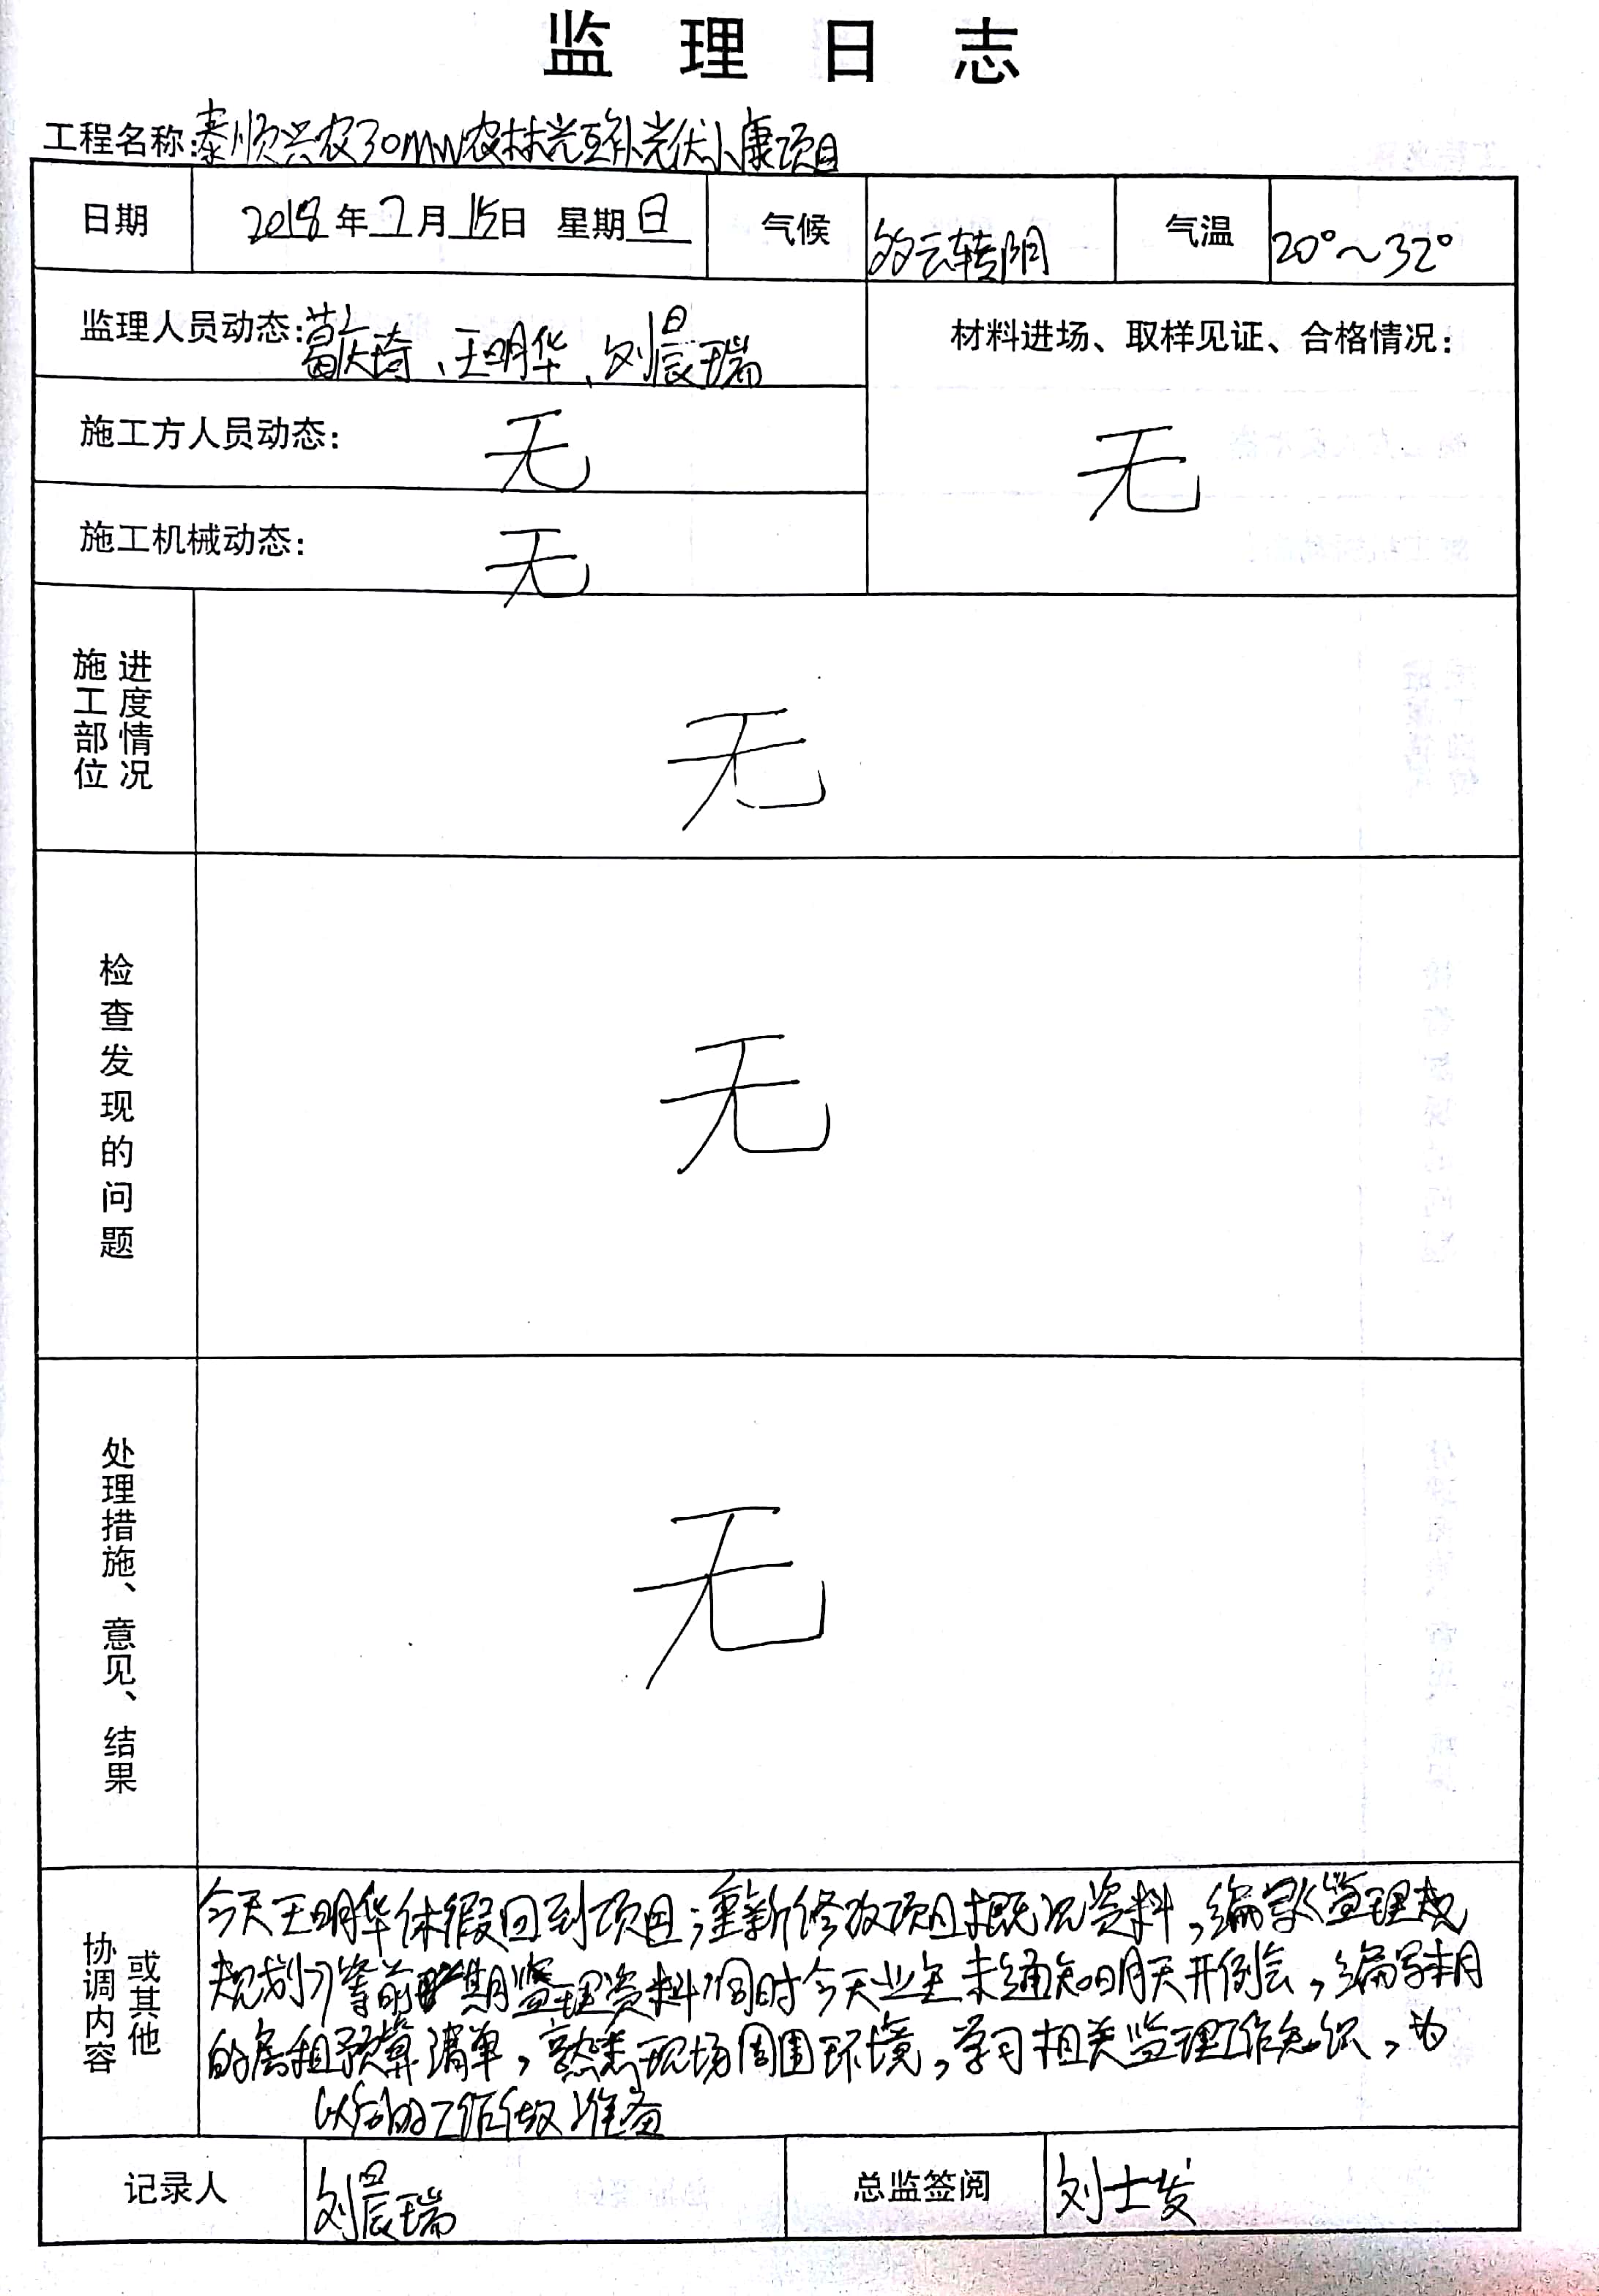 监理日志
工程名称:泰顺兴农30MW农林光互补光伏小康项目
日期 2018年7月15日 星期日 气候 多云转阴 气温 20°~32°
监理人员动态:葛庆琦、王明华、刘晨瑞 材料进场、取样见证、合格情况:
施工方人员动态: 无 无
施工机械动态: 无
施工部位 进度情况 无
检查发现的问题 无
处理措施、意见、结果 无
协调内容 或其他
今天王明华休假回到项目;重新修改项目概况资料,编录《监理规
规划》等前期监理资料;同时今天业主未通知明天开例会,编写本月
的房租预算清单,熟悉现场周围环境,学习相关监理工作知识,为
以后的工作做准备
记录人 刘晨瑞 总监签阅 刘士发